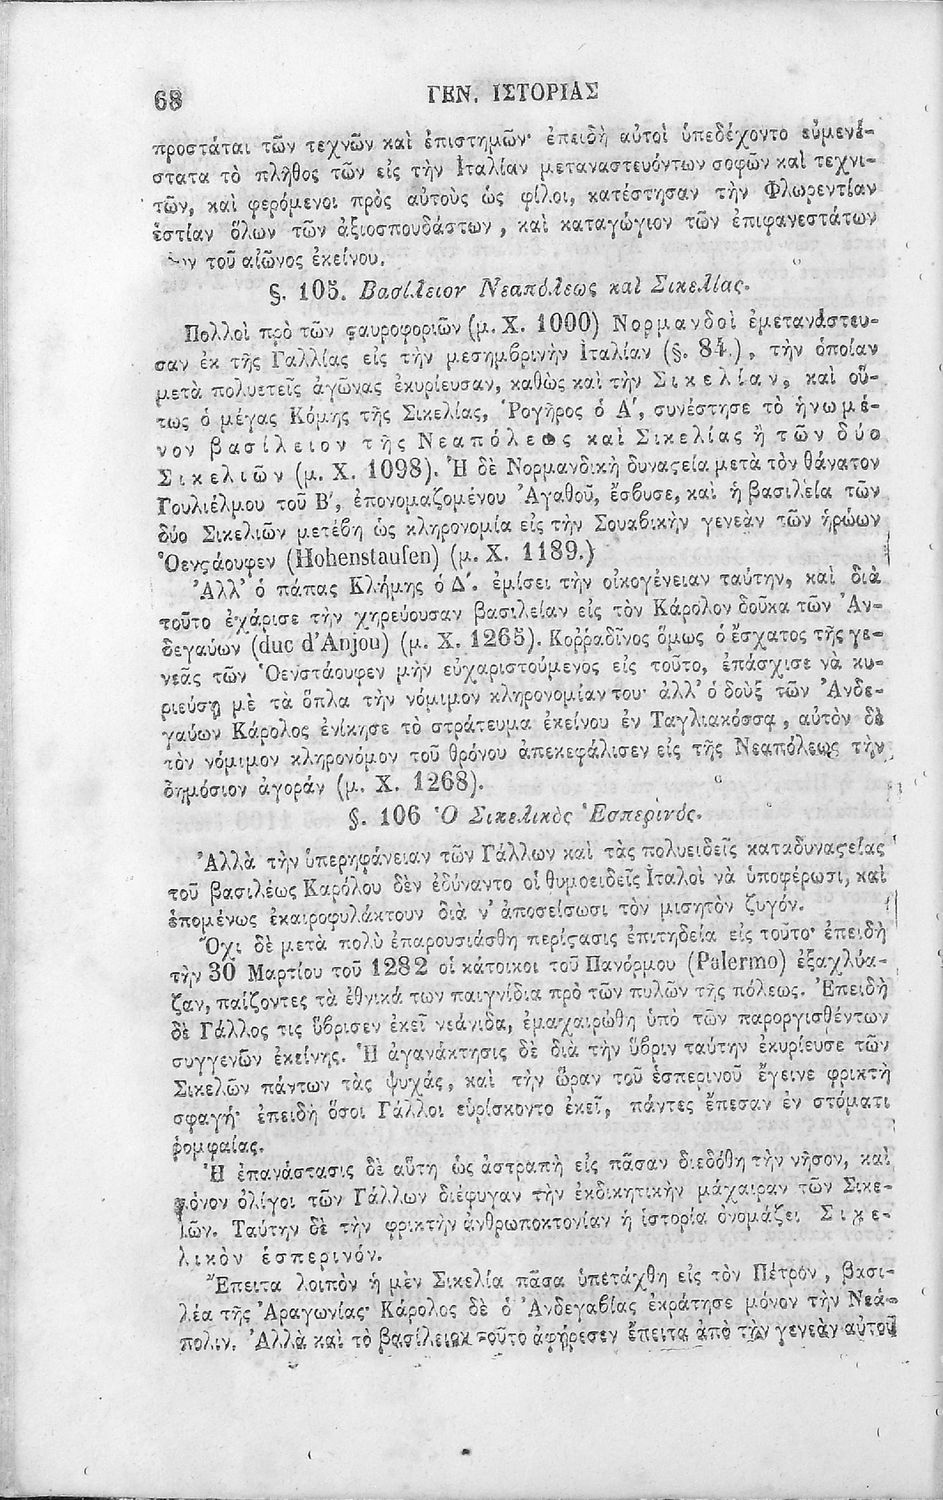 68
ΓΕΝ. ΙΣΤΟΡΙΑΣ
προστάται τῶν τεχνῶν καὶ ἐπιστημῶν· ἐπειδὴ αὐτοὶ ὑπεδέχοντο εὐμενέ-
στατα τὸ πλῆθος τῶν εἰς τὴν Ἰταλίαν μεταναστευόντων σοφῶν καὶ τεχνι-
τῶν, καὶ φερόμενοι πρὸς αὐτοὺς ὡς φίλοι, κατέστησαν τὴν Φλωρεντίαν
ἑστίαν ὅλων τῶν ἀξιοσπουδάστων, καὶ καταγώγιον τῶν ἐπιφανεστάτων
τοῦ αἰῶνος ἐκείνου.
§. 105. Βασίλειον Νεαπόλεως καὶ Σικελίας.
Πολλοὶ πρὸ τῶν ϛαυροφοριῶν (μ. Χ. 1000) Νορμανδοὶ ἐμετανάστευ-
σαν ἐκ τῆς Γαλλίας εἰς τὴν μεσημβρινὴν Ἰταλίαν (§. 84.), τὴν ὁποίαν
μετὰ πολυετεῖς ἀγῶνας ἐκυρίευσαν, καθὼς καὶ τὴν Σικελίαν, καὶ οὕ-
τως ὁ μέγας Κόμης τῆς Σικελίας, Ῥογῆρος ὁ Α΄, συνέστησε τὸ ἡνωμέ-
νον βασίλειον τῆς Νεαπόλεως καὶ Σικελίας ἢ τῶν δύο
Σικελιῶν (μ. Χ. 1098). Ἡ δὲ Νορμανδικὴ δυναϛεία μετὰ τὸν θάνατον
Γουλιέλμου τοῦ Β΄, ἐπονομαζομένου Ἀγαθοῦ, ἔσβυσε, καὶ ἡ βασιλεία τῶν
δύο Σικελιῶν μετέβη ὡς κληρονομία εἰς τὴν Σουαβικὴν γενεὰν τῶν ἡρώων
Ὁενϛάουφεν (Hohenstaufen) (μ. Χ. 1189.)
Ἀλλ' ὁ πάπας Κλήμης ὁ Δ΄. ἐμίσει τὴν οἰκογένειαν ταύτην, καὶ διὰ
τοῦτο ἐχάρισε τὴν χηρεύουσαν βασιλείαν εἰς τὸν Κάρολον δοῦκα τῶν Ἀν-
δεγαύων (duc d'Anjou) (μ. Χ. 1265). Κοῤῥαδῖνος ὅμως ὁ ἔσχατος τῆς γε-
νεᾶς τῶν Ὁενστάουφεν μὴν εὐχαριστούμενος εἰς τοῦτο, ἐπάσχισε νὰ κυ-
ριεύσῃ μὲ τὰ ὅπλα τὴν νόμιμον κληρονομίαν του· ἀλλ' ὁ δοὺξ τῶν Ἀνδε-
γαύων Κάρολος ἐνίκησε τὸ στράτευμα ἐκείνου ἐν Ταγλιακόσσᾳ, αὐτὸν δὲ
τὸν νόμιμον κληρονόμον τοῦ θρόνου ἀπεκεφάλισεν εἰς τῆς Νεαπόλεως τὴν
δημόσιον ἀγορὰν (μ. Χ. 1268).
§. 106 Ὁ Σικελικὸς Ἑσπερινός.
Ἀλλὰ τὴν ὑπερηφάνειαν τῶν Γάλλων καὶ τὰς πολυειδεῖς καταδυναϛείας
τοῦ βασιλέως Καρόλου δὲν ἐδύναντο οἱ θυμοειδεῖς Ἰταλοὶ νὰ ὑποφέρωσι, καὶ
ἑπομένως ἐκαιροφυλάκτουν διὰ ν' ἀποσείσωσι τὸν μισητὸν ζυγόν.
Ὄχι δὲ μετὰ πολὺ ἐπαρουσιάσθη περίϛασις ἐπιτηδεία εἰς τοῦτο· ἐπειδὴ
τὴν 30 Μαρτίου τοῦ 1282 οἱ κάτοικοι τοῦ Πανόρμου (Palermo) ἐξαχλύα-
ζαν, παίζοντες τὰ ἐθνικά των παιγνίδια πρὸ τῶν πυλῶν τῆς πόλεως. Ἐπειδὴ
δὲ Γάλλος τις ὕβρισεν ἐκεῖ νεάνιδα, ἐμαχαιρώθη ὑπὸ τῶν παροργισθέντων
συγγενῶν ἐκείνης. Ἡ ἀγανάκτησις δὲ διὰ τὴν ὕβριν ταύτην ἐκυρίευσε τῶν
Σικελῶν πάντων τὰς ψυχάς, καὶ τὴν ὥραν τοῦ ἑσπερινοῦ ἔγεινε φρικτὴ
σφαγή· ἐπειδὴ ὅσοι Γάλλοι εὑρίσκοντο ἐκεῖ, πάντες ἔπεσαν ἐν στόματι
ῥομφαίας.
Ἡ ἐπανάστασις δὲ αὕτη ὡς ἀστραπὴ εἰς πᾶσαν διεδόθη τὴν νῆσον, καὶ
μόνον ὀλίγοι τῶν Γάλλων διέφυγαν τὴν ἐκδικητικὴν μάχαιραν τῶν Σικε-
λῶν. Ταύτην δὲ τὴν φρικτὴν ἀνθρωποκτονίαν ἡ ἱστορία ὀνομάζει Σικε-
λικὸν ἑσπερινόν.
Ἔπειτα λοιπὸν ἡ μὲν Σικελία πᾶσα ὑπετάχθη εἰς τὸν Πέτρον, βασι-
λέα τῆς Ἀραγωνίας· Κάρολος δὲ ὁ Ἀνδεγαβίας ἐκράτησε μόνον τὴν Νεά-
πολιν. Ἀλλὰ καὶ τὸ βασίλειον τοῦτο ἀφῄρεσεν ἔπειτα ἀπὸ τὴν γενεὰν αὐτοῦ